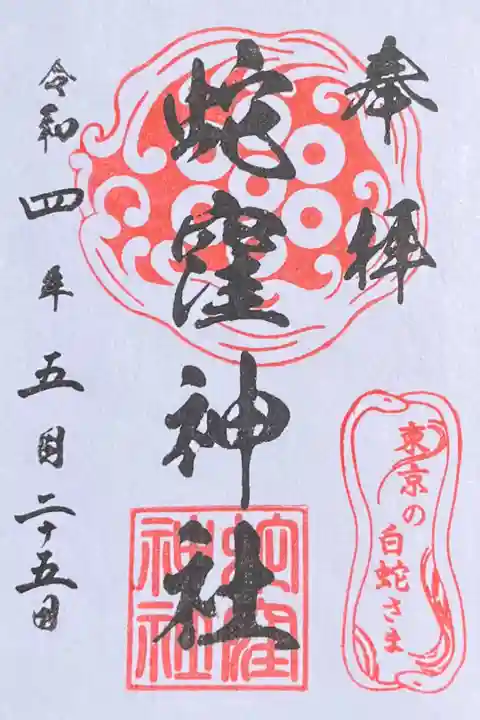 奉拝
東京の
白蛇さま
蛇窪神社
蛇窪
神社
令和四年五月二十五日